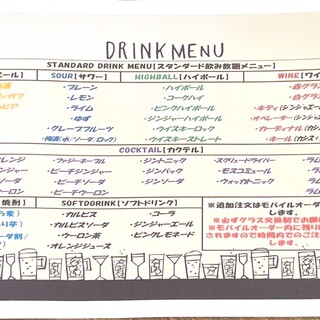 DRINK MENU
STANDARD DRINK MENU【スタンダード飲み放題メニュー】
エール】 SOUR【サワー】 HIGHBALL【ハイボール】 WINE【ワイ
・プレーン ・ハイボール ・赤グラ
・レモン ・コークハイ ・白グラ
・ライム ・ピンクハイボール ・キティ(
・ゆず ・ジンジャーハイボール ・オペレーター(
・グレープフルーツ ・ウイスキーロック ・カーディナル(
・梅酒(水/ソーダ/ロック) ・ウイスキーストレート ・キール(
COCKTAIL【カクテル】
レンジ ・ファジーネーブル ・ジントニック ・スクリュードライバー ・ラム
・ピーチジンジャー ・ジンバック ・モスコミュール ・ラム
・ピーチソーダ ・ジンソーダ ・ウォッカトニック ・ラム
ーロン ・ピーチウーロン ・ラム
焼酎】 SOFTDRINK【ソフトドリンク】
・カルピス ・コーラ
・カルピスソーダ ・ジンジャーエール
・ウーロン茶 ・ピンクレモネード
・オレンジジュース
※追加注文はモバイルオーダー
します。
※必ずグラス交換制でお願
※モバイルオーダー内に残り
されますので時間内でのご注
します。